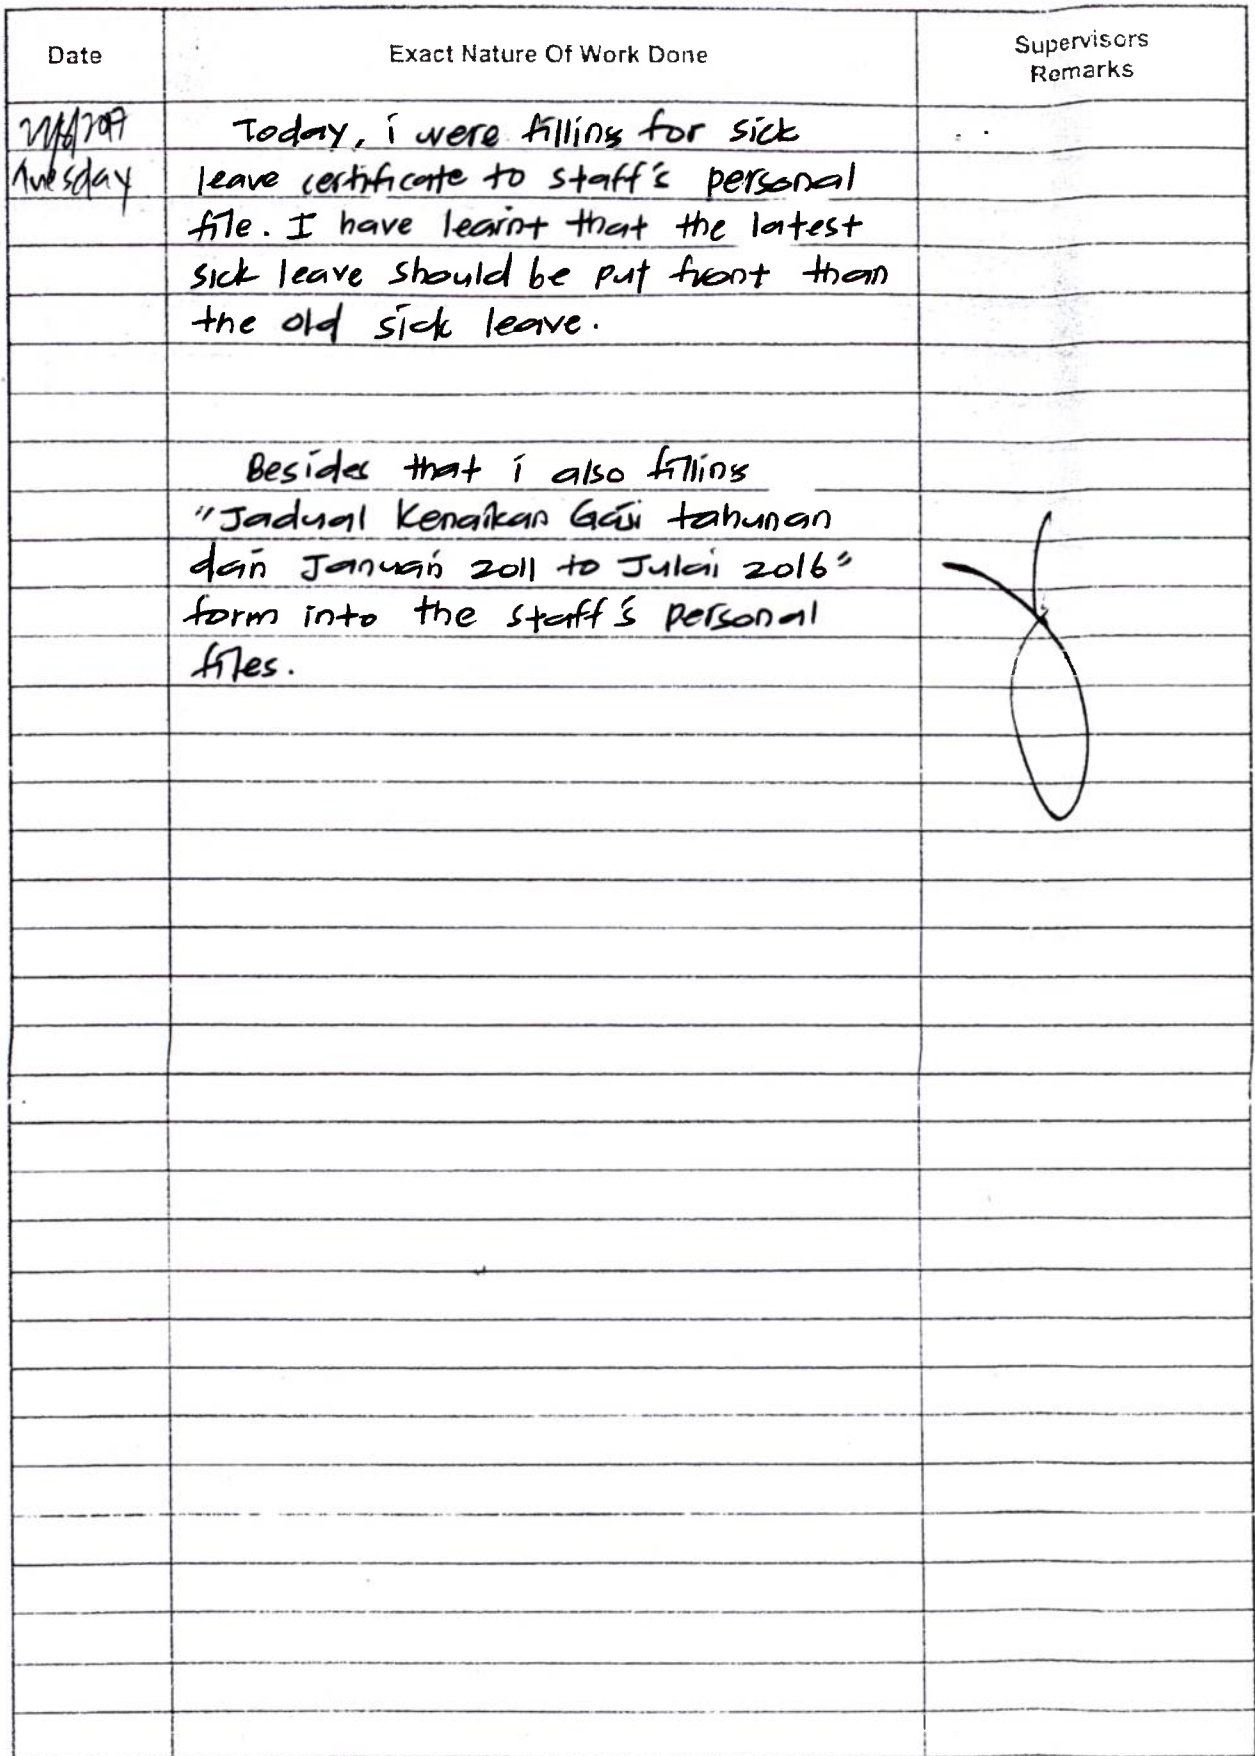 Date Exact Nature Of Work Done Supervisors
Remarks
Today, i were filling for sick
Tuesday leave certificate to staff's personal
file. I have learnt that the latest
sick leave should be put front than
the old sick leave.
Besides that i also filling
"Jadual Kenaikan Gaji tahunan
dari Januari 2011 to Julai 2016"
form into the staff's personal
files.